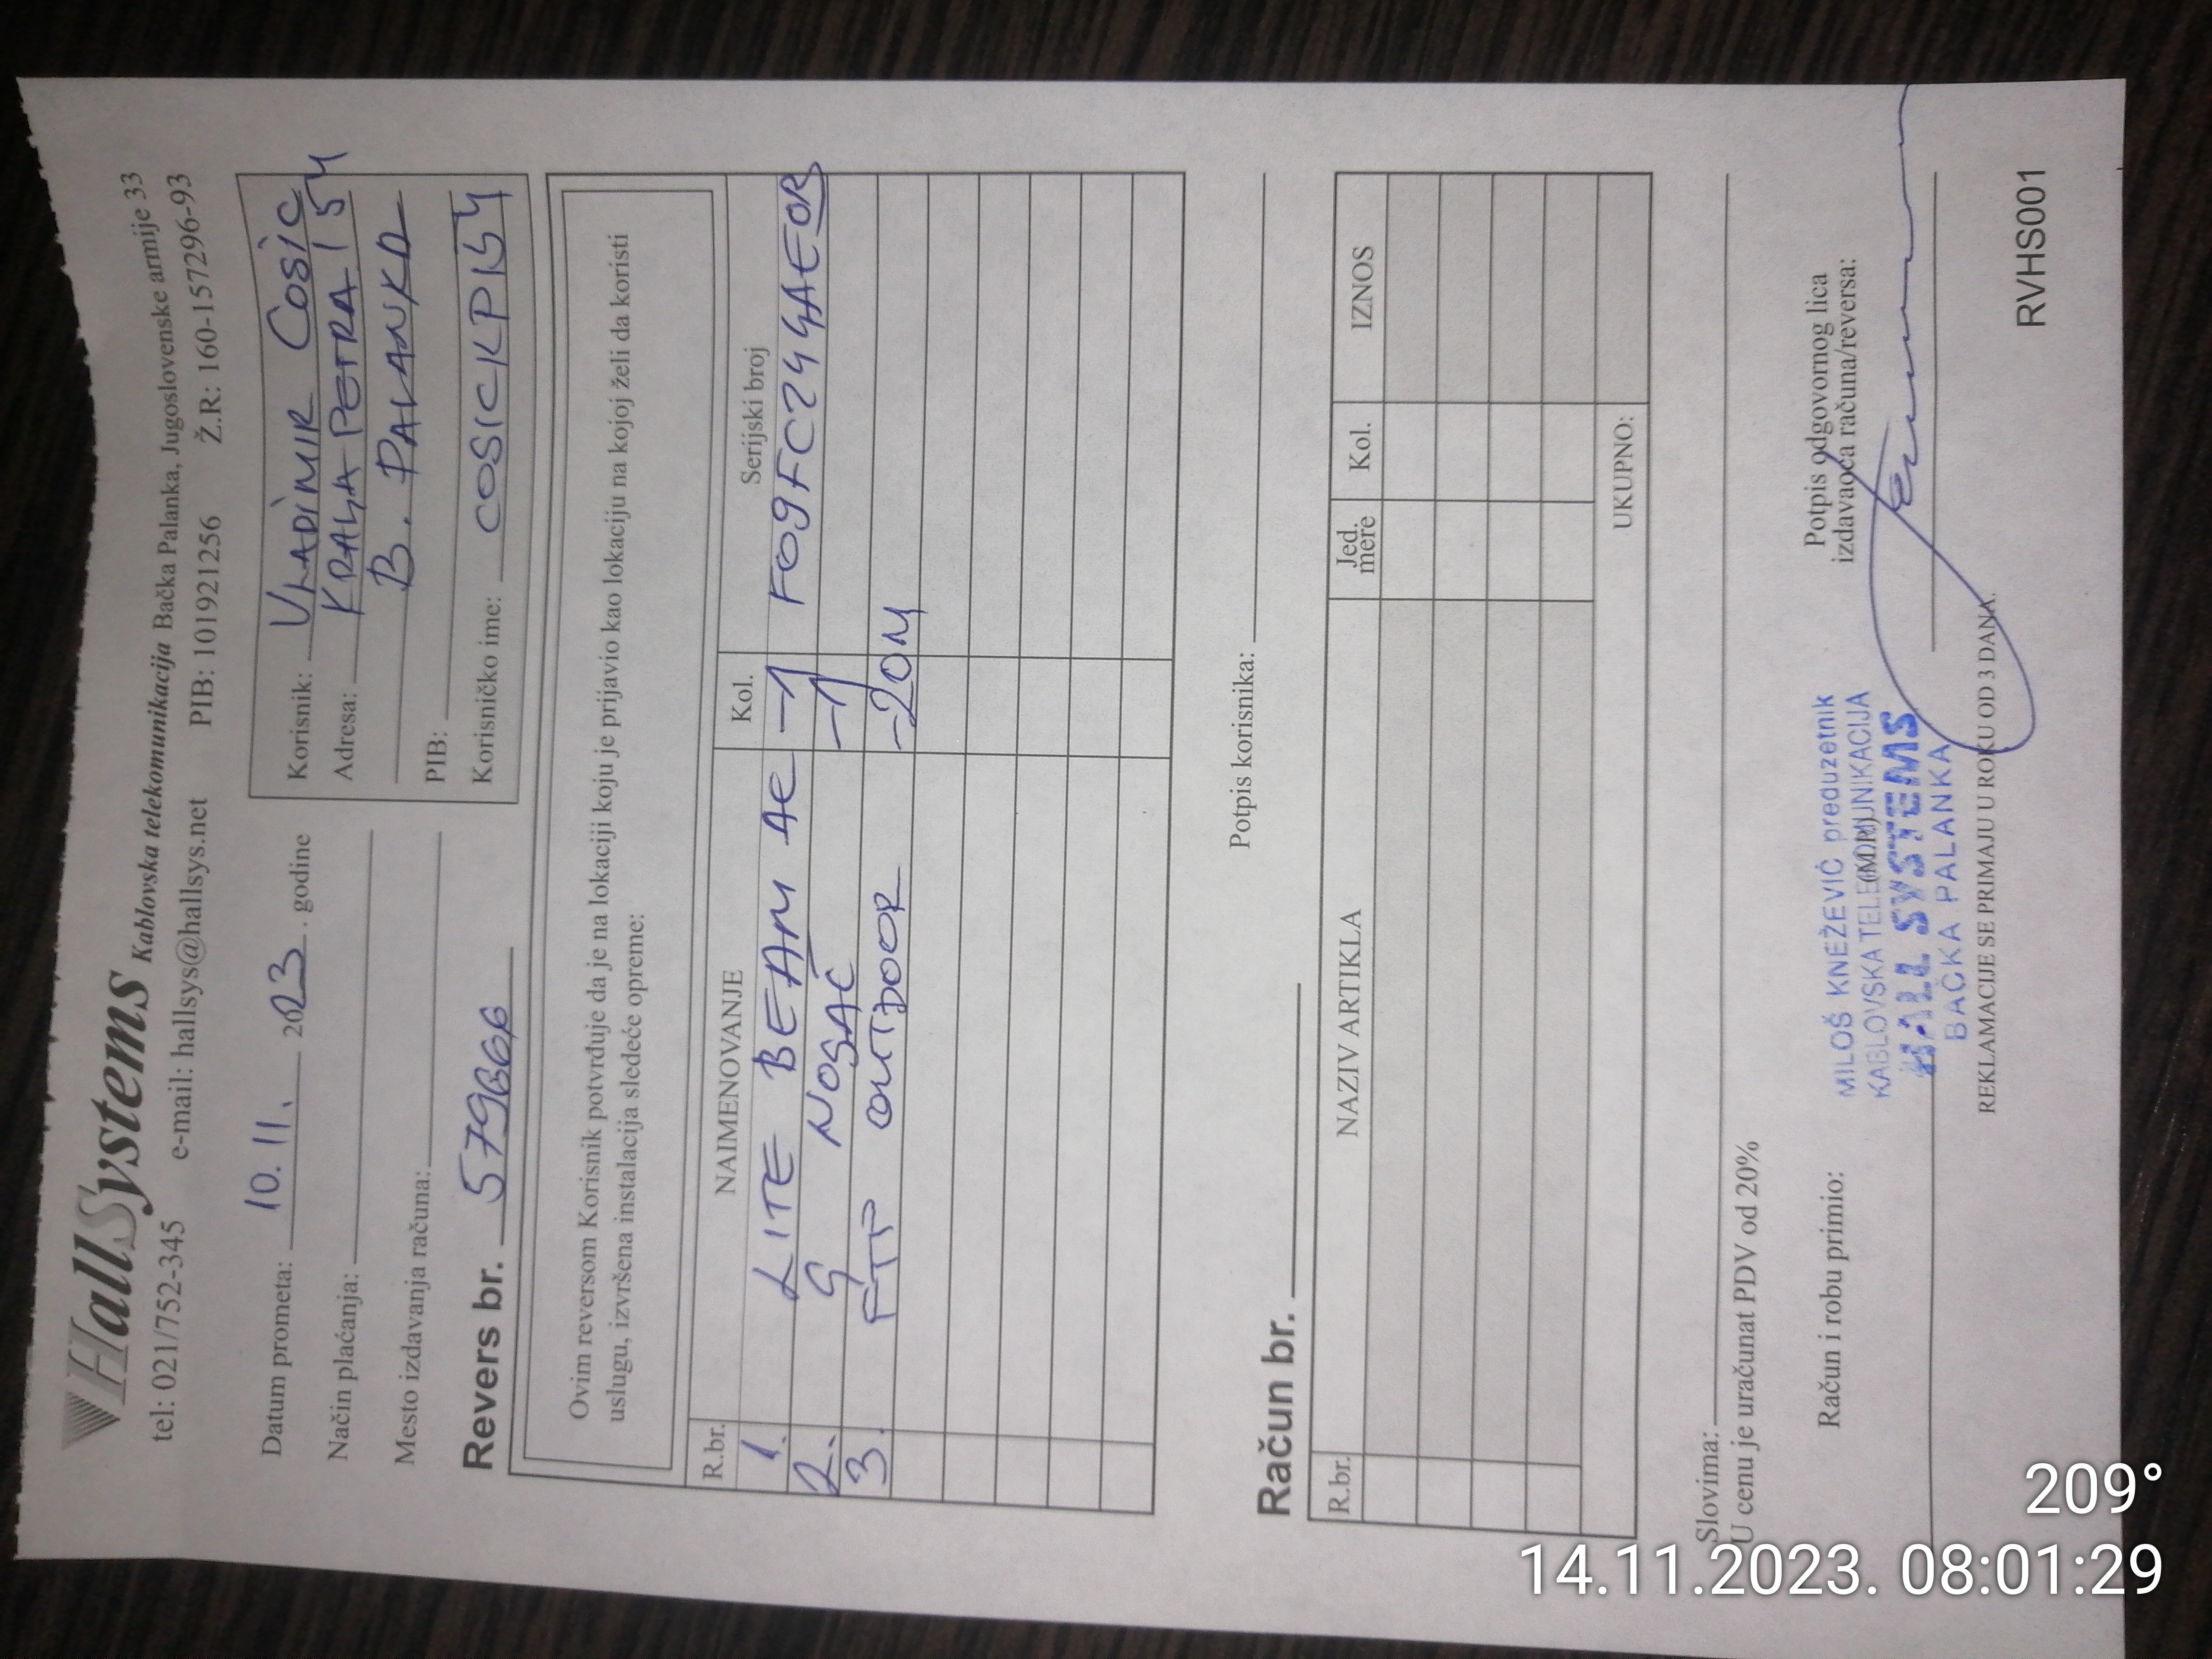 HallSystems Kablovska telekomunikacija Bačka Palanka, Jugoslovenske armije 33
tel: 021/752-345 e-mail: hallsys@hallsys.net PIB: 101921256 Ž.R.: 160-157296-93
Datum prometa: 10.11. 2023. godine
Način plaćanja:
Mesto izdavanja računa:
Revers br.
Korisnik: VLADIMIR COSIC
Adresa: KRALJA PETRA I 54
B. PALANKA
PIB:
Korisničko ime: COSICKPI54
Ovim reversom Korisnik potvrđuje da je na lokaciji koju je prijavio kao lokaciju na kojoj želi da koristi
uslugu, izvršena instalacija sledeće opreme:
R.br. NAIMENOVANJE Kol. Serijski broj
1. LITE BEAM AC -1 F09FC244AE0B
2. G NOSAČ -1
3. FTP OUTDOOR -20M
Potpis korisnika:
Račun br.
R.br. NAZIV ARTIKLA Jed. mere Kol. IZNOS
UKUPNO:
Slovima:
U cenu je uračunat PDV od 20%
Račun i robu primio:
(M.P.)
Potpis odgovornog lica
izdavaoca računa/reversa:
MILOŠ KNEŽEVIĆ preduzetnik
KABLOVSKA TELEKOMUNIKACIJA
HALL SYSTEMS
BAČKA PALANKA
REKLAMACIJE SE PRIMAJU U ROKU OD 3 DANA.
RVHS001
209°
14.11.2023. 08:01:29